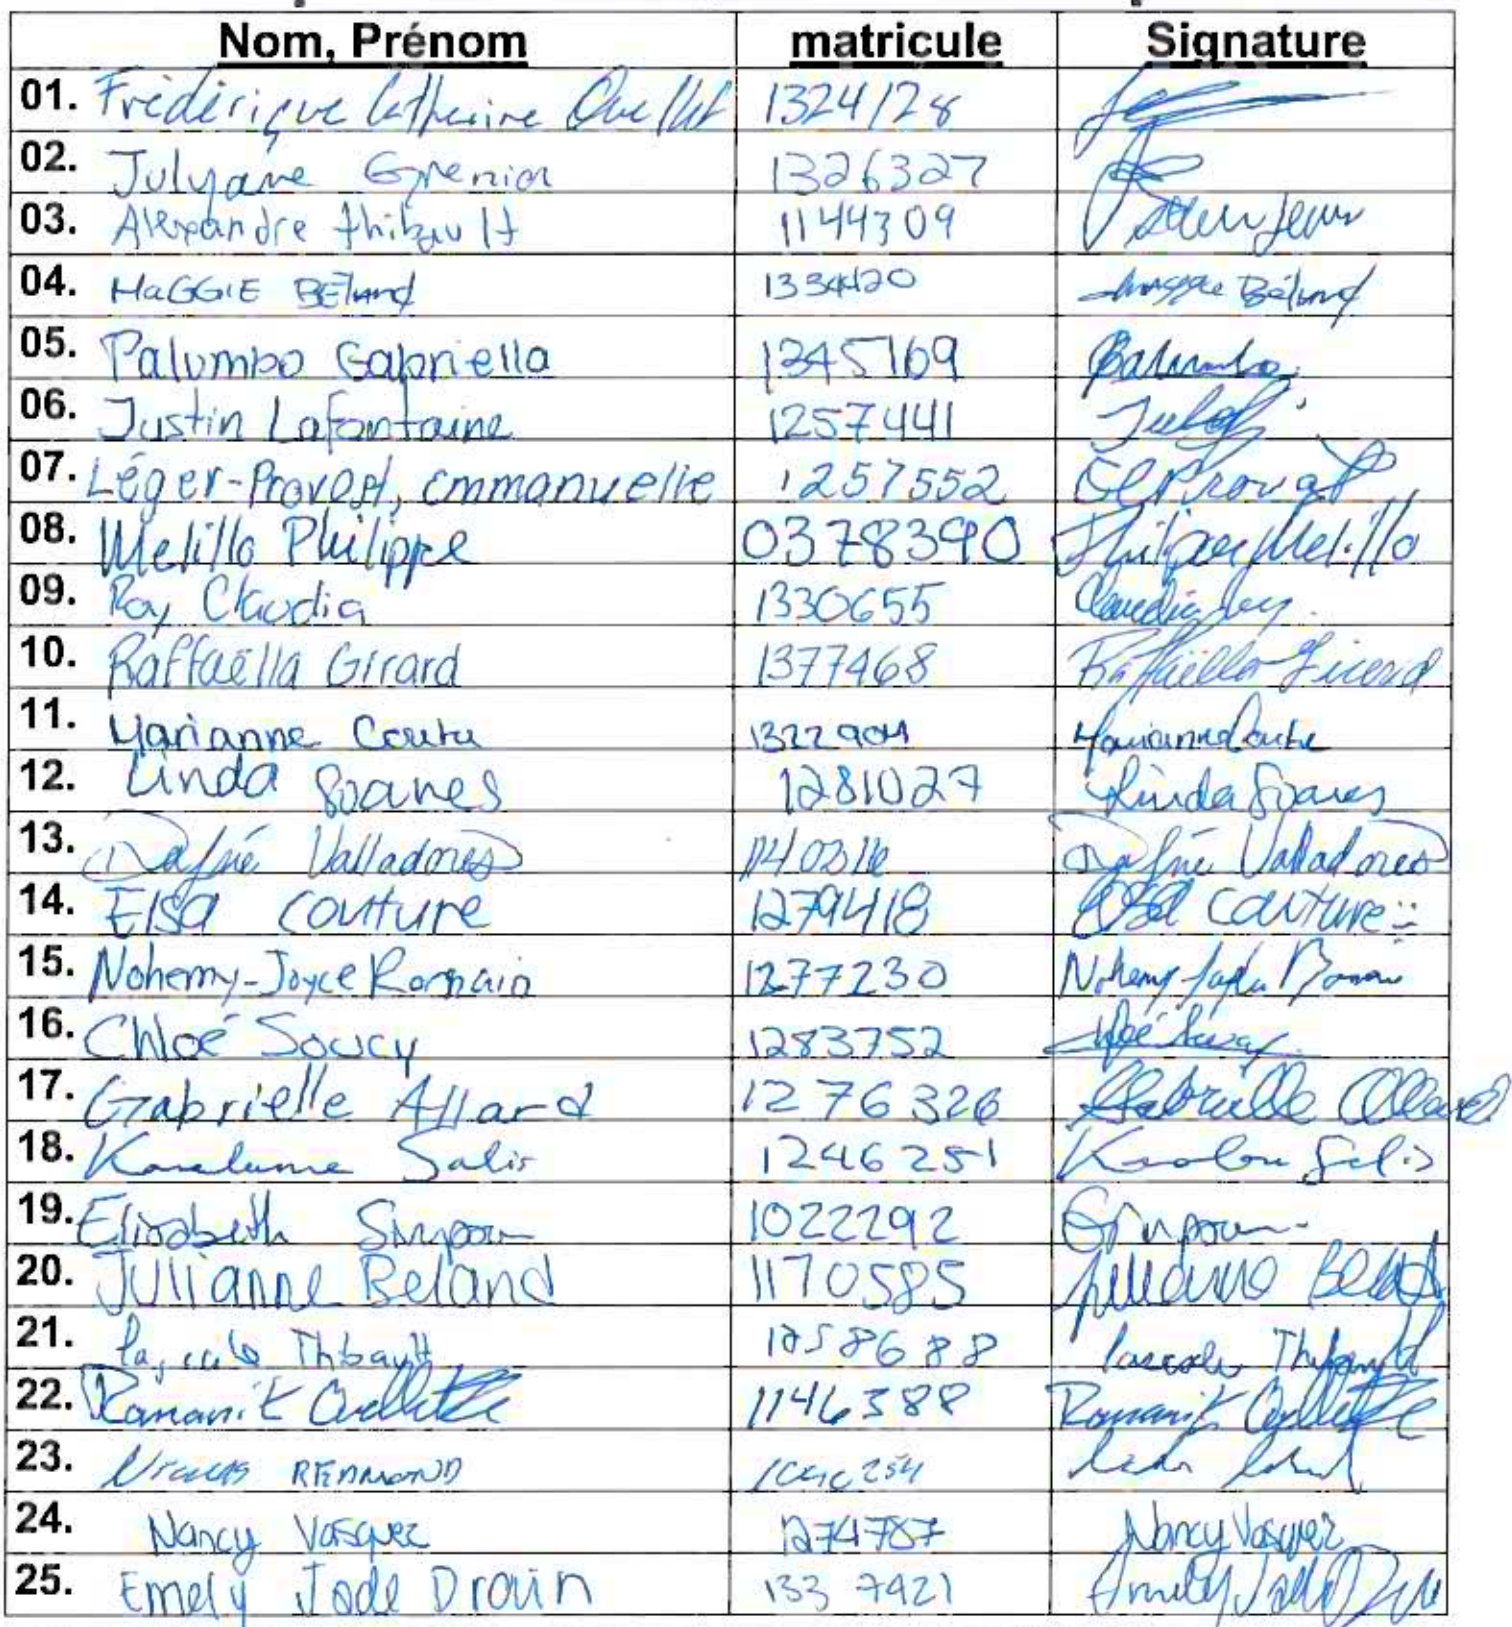 Nom, Prénom matricule Signature
01. Frédérique Catherine Ouellet 1324128
02. Julyane Grenier 1326327
03. Alexandre thibault 1144309
04. MaGGIE BÉland 1334420 Maggie Béland
05. Palumbo Gabriella 1245169 Palumbo
06. Justin Lafontaine 1257441
07. Léger-Provost, emmanuelle 1257552 ELProvost
08. Melillo Philippe 0378390 Philippe Melillo
09. Roy Claudia 1330655 Claudia Roy
10. Raffaëlla Girard 1377468 Raffaëlla Girard
11. Marianne Coutu 1322904 Marianne Coutu
12. Linda Soares 1281027 Linda Soares
13. Dafné Valladares 1140316 Dafné Valladares
14. Elsa couture 1279418 Elsa couture
15. Nohemy-Joyce Romain 1277230 Nohemy Joyce Romain
16. Chloé Soucy 1283752 Chloé Soucy
17. Gabrielle Allard 1276326 Gabrielle Allard
18. Salis 1246251 Salis
19. Elisabeth Simpson 1022292 ESimpson
20. Julianne Beland 1170585 Julianne Beland
21. Pascale Thibault 1258688 Pascale Thibault
22. Romanik Ouellette 1146388 Romanik Ouellette
23. REDMOND
24. Nancy Vasquez 1274787 Nancy Vasquez
25. Emely Jade Drouin 1337421